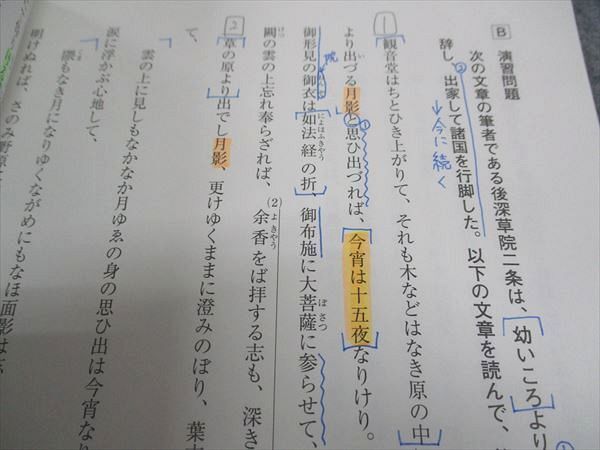 B 演習問題
次の文章の筆者である後深草院二条は、幼いころより
辞し、出家して諸国を行脚した。以下の文章を読んで、
②
↓今に続く
1
観音堂はちとひき上がりて、それも木などはなき原の中
より出づる月影と思ひ出づれば、今宵は十五夜なりけり。
①
御形見の御衣は如法経の折、御布施に大菩薩に参らせて、
によほふきやう
ぼさつ
闕の雲の上忘れ奉らざれば、余香をば拝する志も、深き
けつ
(2)
よきやう
2
草の原より出でし月影、更けゆくままに澄みのぼり、葉
て、
雲の上に見しもなかなか月ゆゑの身の思ひ出は今宵なり
涙に浮かぶ心地して、
隈もなき月になりゆくながめにもなほ面影は
くま
明けぬれば、さのみ野原